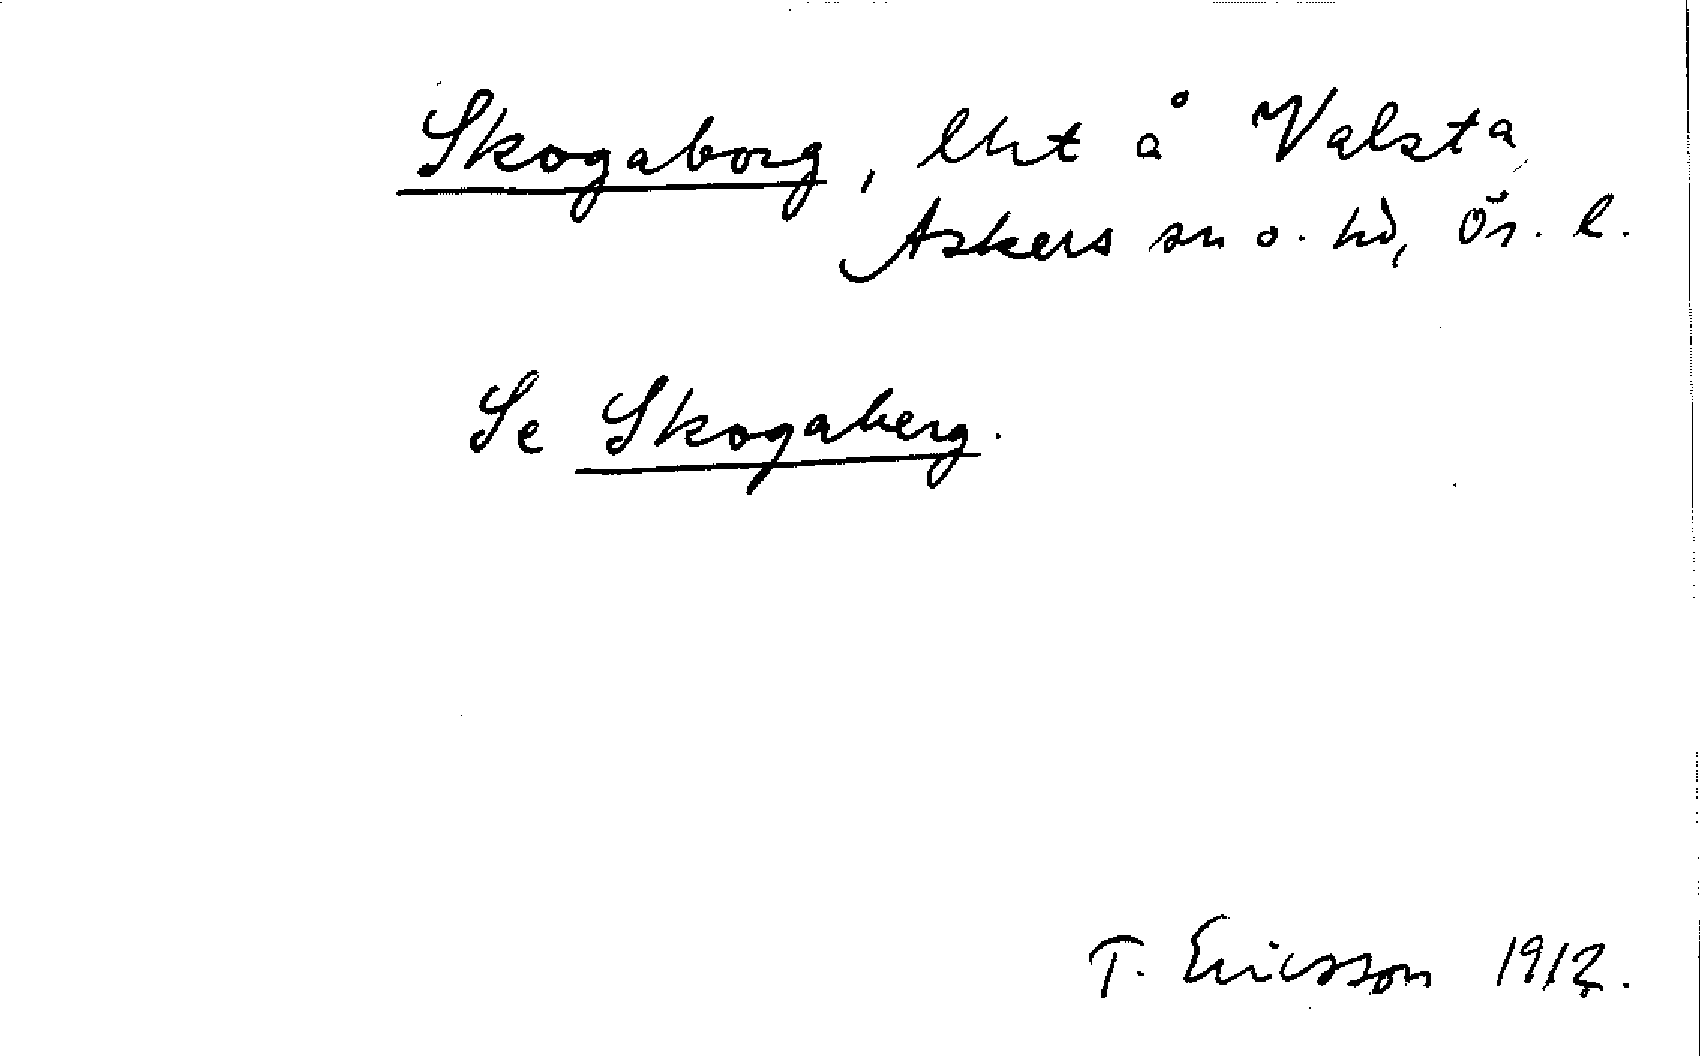 Skogaborg, lht å Valsta
Askers sn o. hd, Ör. l.
Se Skogaberg.
T. Ericsson 1912.